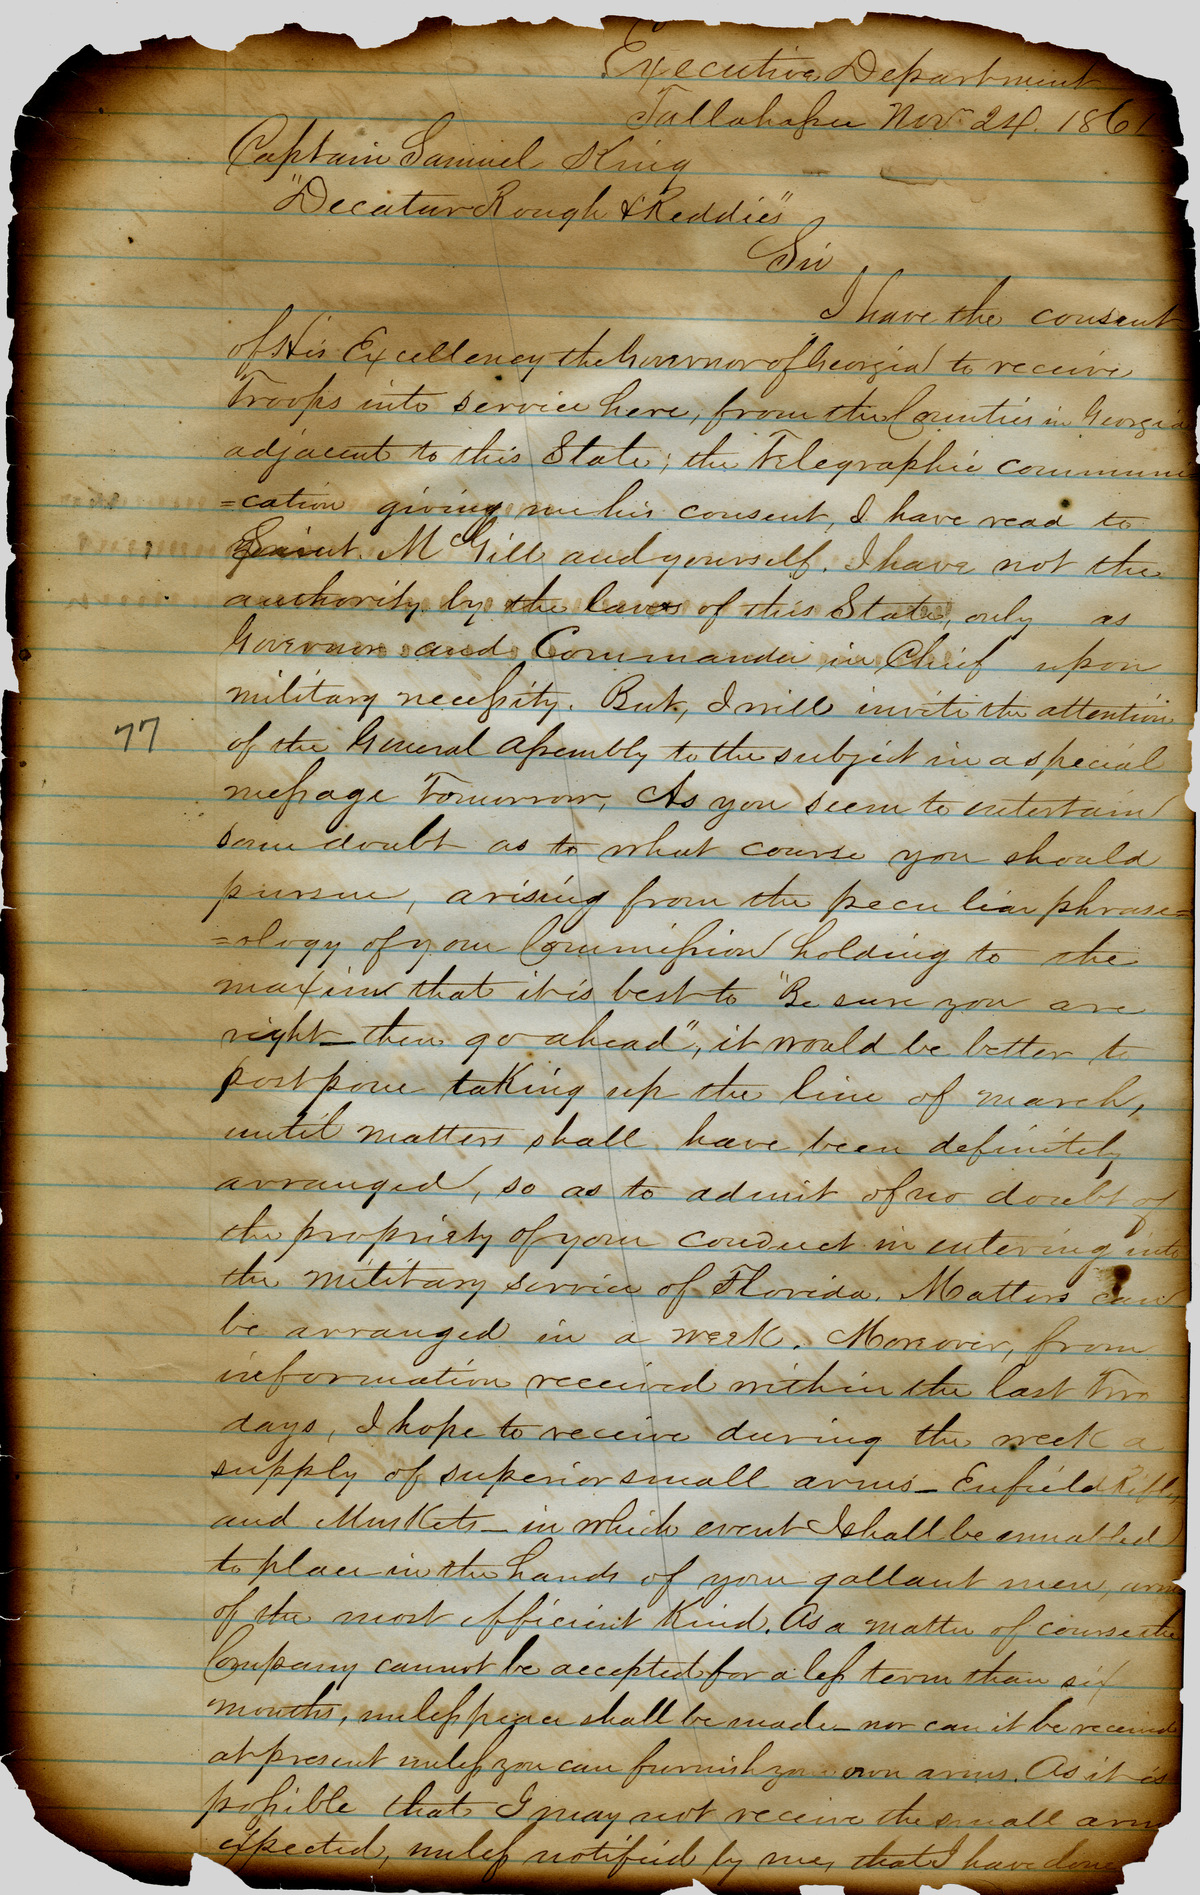 Executive Department
Tallahassee Nov. 24. 1861
Captain Samuel King
"Decatur Rough & Reddies"
Sir
I have the consent
of His Excellency the Governor of Georgia to receive
Troops into service here, from the Counties in Georgia
adjacent to this State; the Telegraphic communi
=cation giving me his consent, I have read to
Lieut. McGill and yourself. I have not the
authority by the laws of this State, only as
Governor and Commander in Chief upon
military necessity. But, I will invite the attention
of the General Assembly to the subject in a special
message Tomorrow. As you seem to entertain
some doubt as to what course you should
pursue, arising from the peculiar phrase=
=ology of your Commission holding to the
maxim that it is best to "Be sure you are
right - then go ahead", it would be better to
postpone taking up the line of march,
until matters shall have been definitely
arranged, so as to admit of no doubt of
the propriety of your conduct in entering into
the military service of Florida. Matters can
be arranged in a week. Moreover, from
information received within the last Two
days, I hope to receive during the week a
supply of superior small arms - Enfield Rifles
and Muskets - in which event I shall be ennabled
to place in the hands of your gallant men, arms
of the most efficient Kind. As a matter of course the
Company cannot be accepted for a less term than six
months, unless peace shall be made - nor can it be received
at present unless you can furnish your own arms. As it is
possible that I may not receive the small arms
expected, unless notified by me, that I have done
77